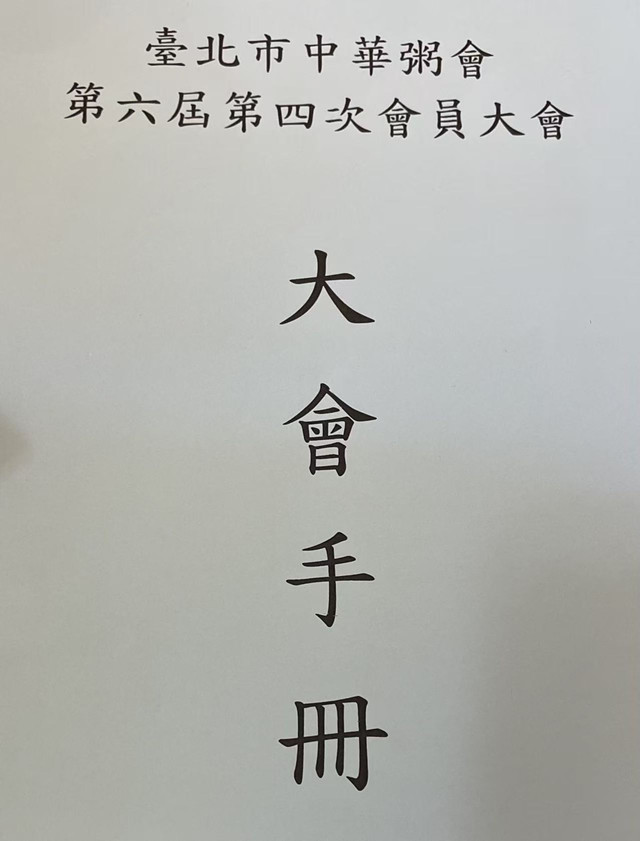 臺北市中華粥會
第六屆第四次會員大會
大會手冊